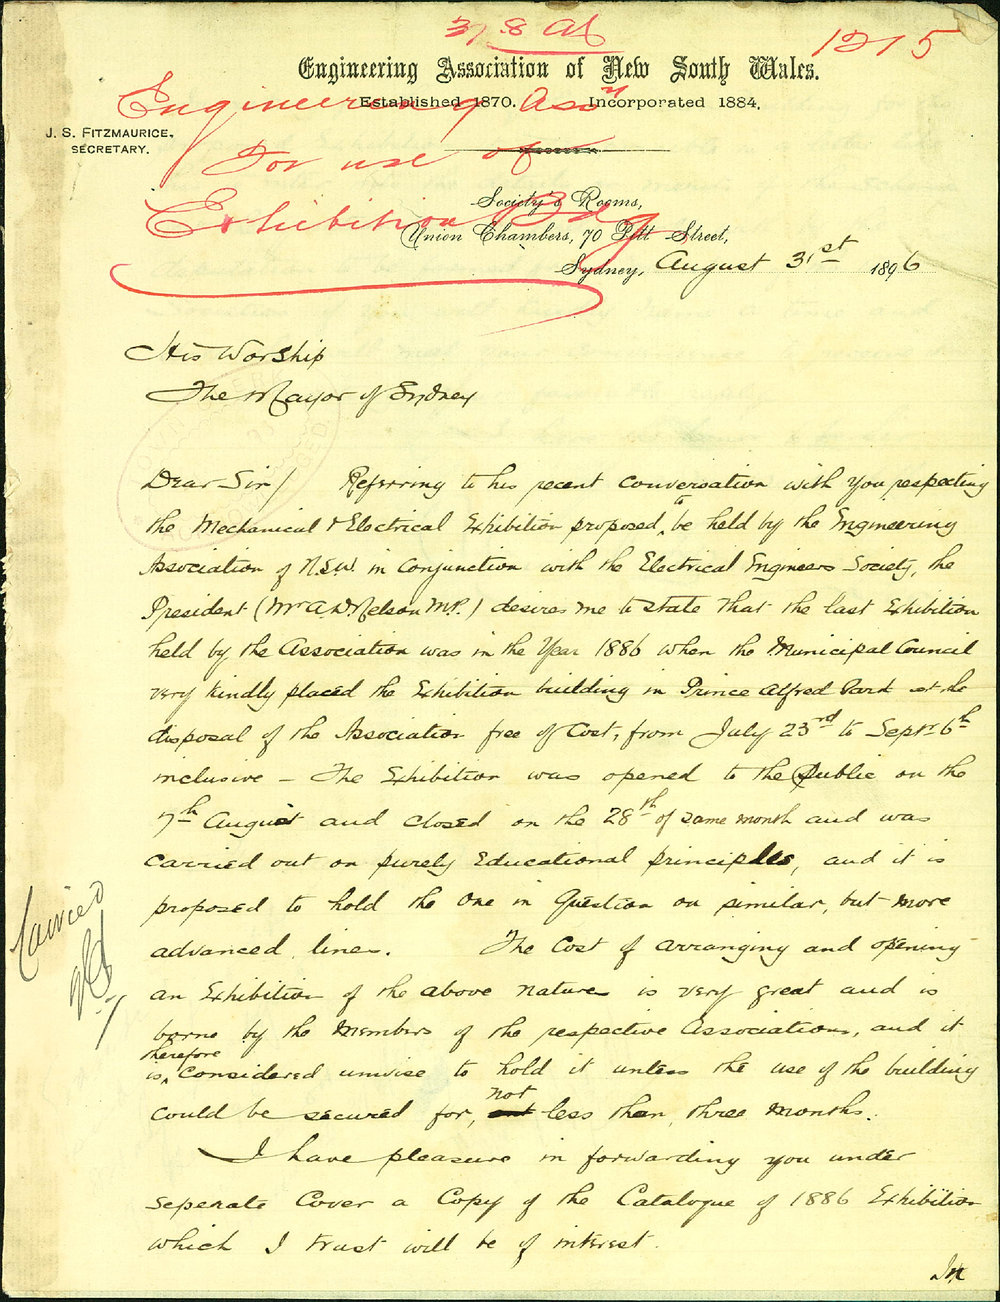 31.8.96
1215
Engineering Association of New South Wales.
Established 1870. Incorporated 1884.
Engineering Assn
J. S. FITZMAURICE,
SECRETARY.
For use of
Exhibition Bdg
Society's Rooms,
Union Chambers, 70 Pitt Street,
Sydney, August 31st 1896
His Worship
The Mayor of Sydney
Dear Sir/ Referring to his recent conversation with you respecting
the Mechanical & Electrical Exhibition proposed to be held by the Engineering
Association of N.S.W. in conjunction with the Electrical Engineers Society, the
President (Mr A. D. Nelson M.P.) desires me to state that the last Exhibition
held by the Association was in the Year 1886 when the Municipal Council
very kindly placed the Exhibition building in Prince Alfred Park at the
disposal of the Association free of Cost, from July 23rd to Septr 6th
inclusive – The Exhibition was opened to the Public on the
7th August and closed on the 28th of same month and was
carried out on purely Educational principles, and it is
proposed to hold the one in Question on similar, but more
advanced lines. The Cost of arranging and opening
an Exhibition of the above nature is very great and is
borne by the Members of the respective Associations, and it
is, therefore considered unwise to hold it unless the use of the building
could be secured for, not less than, three months.
Carried
I have pleasure in forwarding you under
seperate Cover a Copy of the Catalogue of 1886 Exhibition
which I trust will be of interest.
In